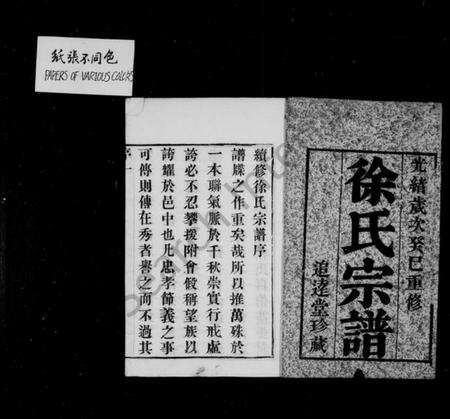 紙張不同色
PAPERS OF VARIOUS COLORS
光緒歲次癸巳重修
徐氏宗譜
追遠堂珍藏
續修徐氏宗譜序
譜牒之作重矣哉所以推萬殊於
一本聯氣脈於千秋崇實行戒虛
誇必不忍攀援附會假稱望族以
誇耀於邑中也凡忠孝節義之事
可傳則傳在秀者譽之而不過其
序
一